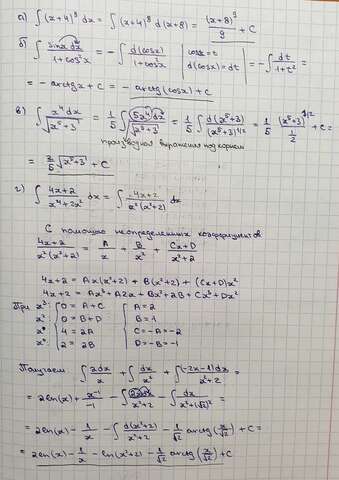 а) ∫(x+4)⁸ dx = ∫(x+4)⁸ d(x+8) = (x+4)⁹/9 + C
б) ∫ sinx dx/(1+cos²x) = -∫ d(cosx)/(1+cos²x) | cosx=t d(cosx)=dt | = -∫ dt/(1+t²) =
= -arctgx + C = -arctg(cosx) + C
в) ∫ x⁴dx/√(x⁵+3) = 1/5 ∫ 5x⁴dx/√(x⁵+3) = 1/5 ∫ d(x⁵+3)/(x⁵+3)^(1/2) = 1/5 (x⁵+3)^(1/2)/(1/2) + C =
производная выражения под корнем
= 2/5 √(x⁵+3) + C
г) ∫ (4x+2)/(x⁴+2x²) dx = ∫ (4x+2)/(x²(x²+2)) dx
С помощью неопределенных коэффициентов
(4x+2)/(x²(x²+2)) = A/x + B/x² + (Cx+D)/(x²+2)
4x+2 = Ax(x²+2) + B(x²+2) + (Cx+D)x²
4x+2 = Ax³+A2x+Bx²+2B+Cx³+Dx²
При x³: 0=A+C A=2
x²: 0=B+D B=1
x¹: 4=2A C=-A=-2
x⁰: 2=2B D=-B=-1
Получаем ∫ 2dx/x + ∫ dx/x² + ∫ (-2x-1)dx/(x²+2) =
= 2ln(x) + x⁻¹/-1 - ∫ 2xdx/(x²+2) - ∫ dx/(x²+(√2)²) =
= 2ln(x) - 1/x - ∫ d(x²+2)/(x²+2) - 1/√2 arctg(x/√2) + C =
= 2ln(x) - 1/x - ln(x²+2) - 1/√2 arctg(x/√2) + C